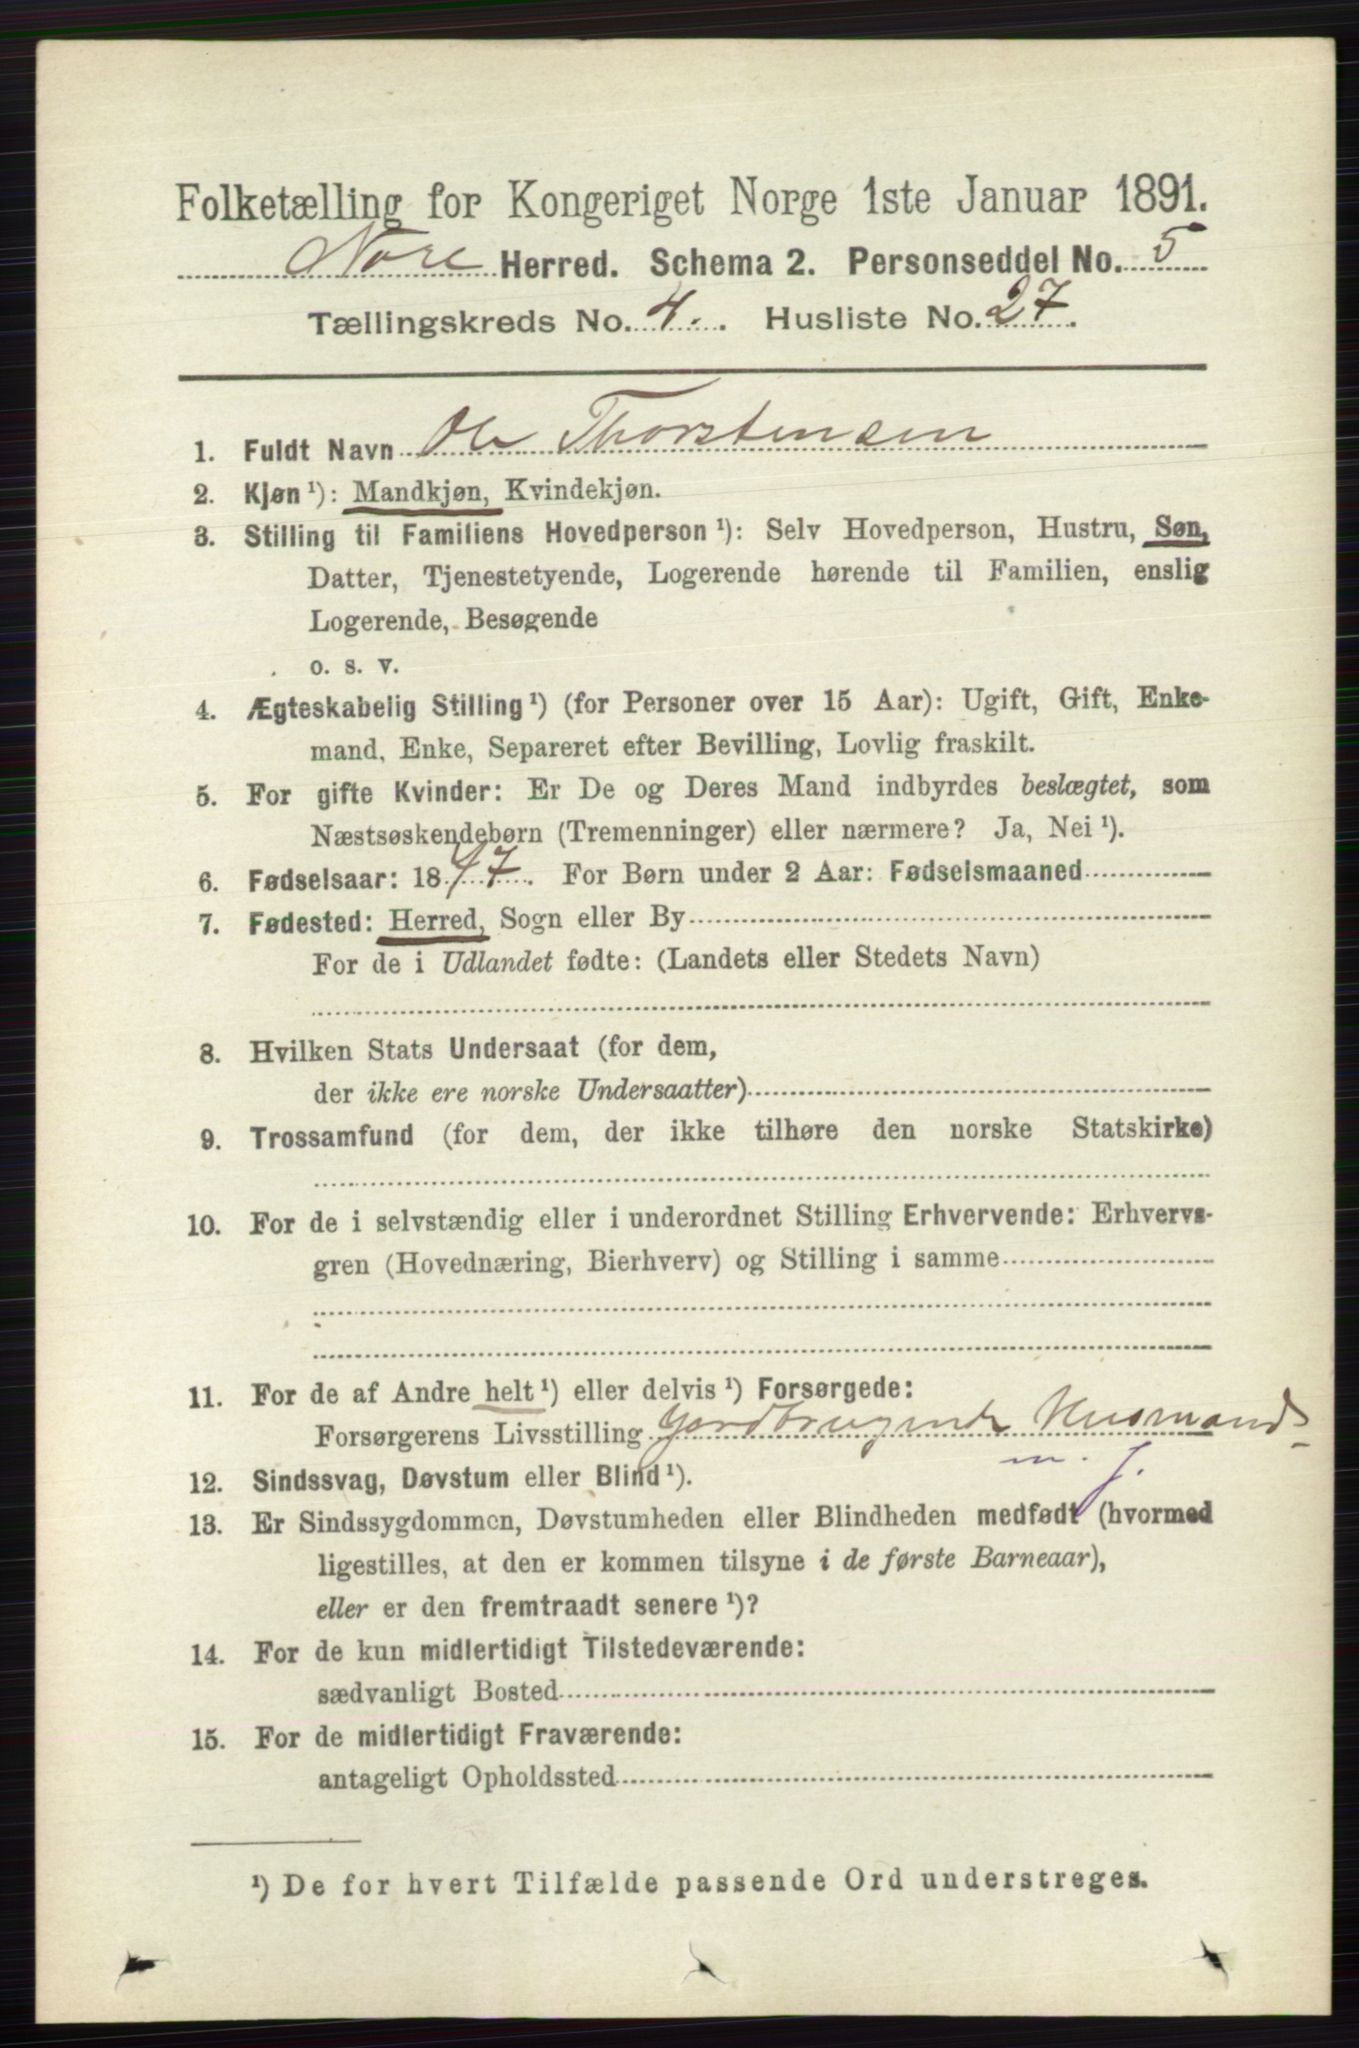 Folketælling for Kongeriget Norge 1ste Januar 1891.
Nore Herred. Schema 2. Personseddel No. 5
Tællingskreds No. 4. Husliste No. 27.
1. Fuldt Navn Ole Thorstensen
2. Kjøn ¹): Mandkjøn, Kvindekjøn.
3. Stilling til Familiens Hovedperson ¹): Selv Hovedperson, Hustru, Søn,
Datter, Tjenestetyende, Logerende hørende til Familien, enslig
Logerende, Besøgende
o. s. v.
4. Ægteskabelig Stilling ¹) (for Personer over 15 Aar): Ugift, Gift, Enke-
mand, Enke, Separeret efter Bevilling, Lovlig fraskilt.
5. For gifte Kvinder: Er De og Deres Mand indbyrdes beslægtet, som
Næstsøskendebørn (Tremenninger) eller nærmere? Ja, Nei ¹).
6. Fødselsaar: 18 . For Børn under 2 Aar: Fødselsmaaned
7. Fødested: Herred, Sogn eller By
For de i Udlandet fødte: (Landets eller Stedets Navn)
8. Hvilken Stats Undersaat (for dem,
der ikke ere norske Undersaatter)
9. Trossamfund (for dem, der ikke tilhøre den norske Statskirke)
10. For de i selvstændig eller i underordnet Stilling Erhvervende: Erhvervs-
gren (Hovednæring, Bierhverv) og Stilling i samme
11. For de af Andre helt ¹) eller delvis ¹) Forsørgede:
Forsørgerens Livsstilling Gordbrugende Husmand
m. J.
12. Sindssvag, Døvstum eller Blind ¹).
13. Er Sindssygdommen, Døvstumheden eller Blindheden medfødt (hvormed
ligestilles, at den er kommen tilsyne i de første Barneaar),
eller er den fremtraadt senere ¹)?
14. For de kun midlertidigt Tilstedeværende:
sædvanligt Bosted
15. For de midlertidigt Fraværende:
antageligt Opholdssted
¹) De for hvert Tilfælde passende Ord understreges.